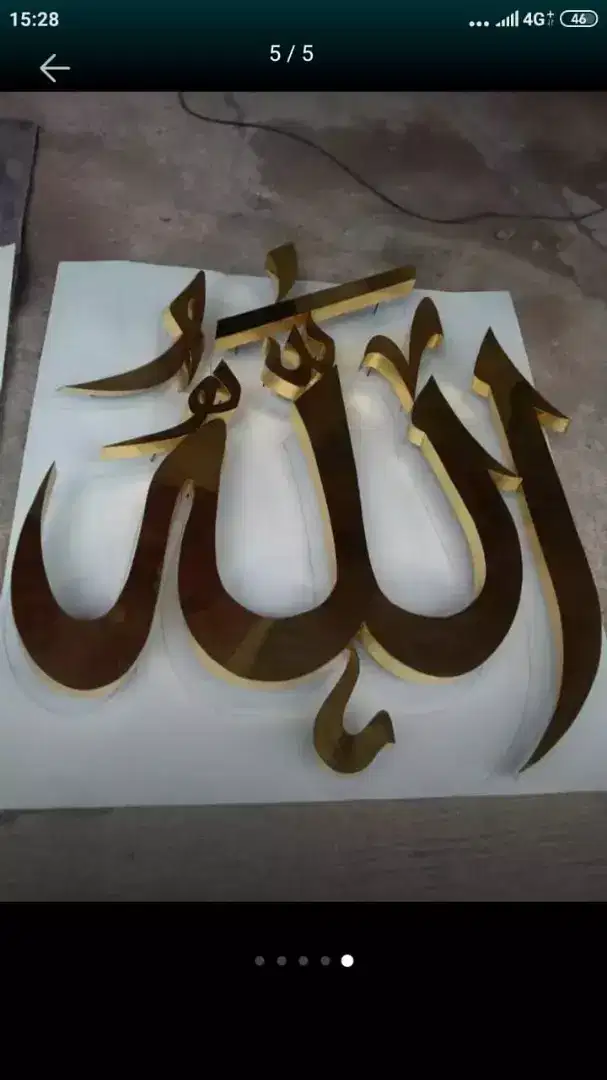 15:28
4G+ 46
5 / 5
الله